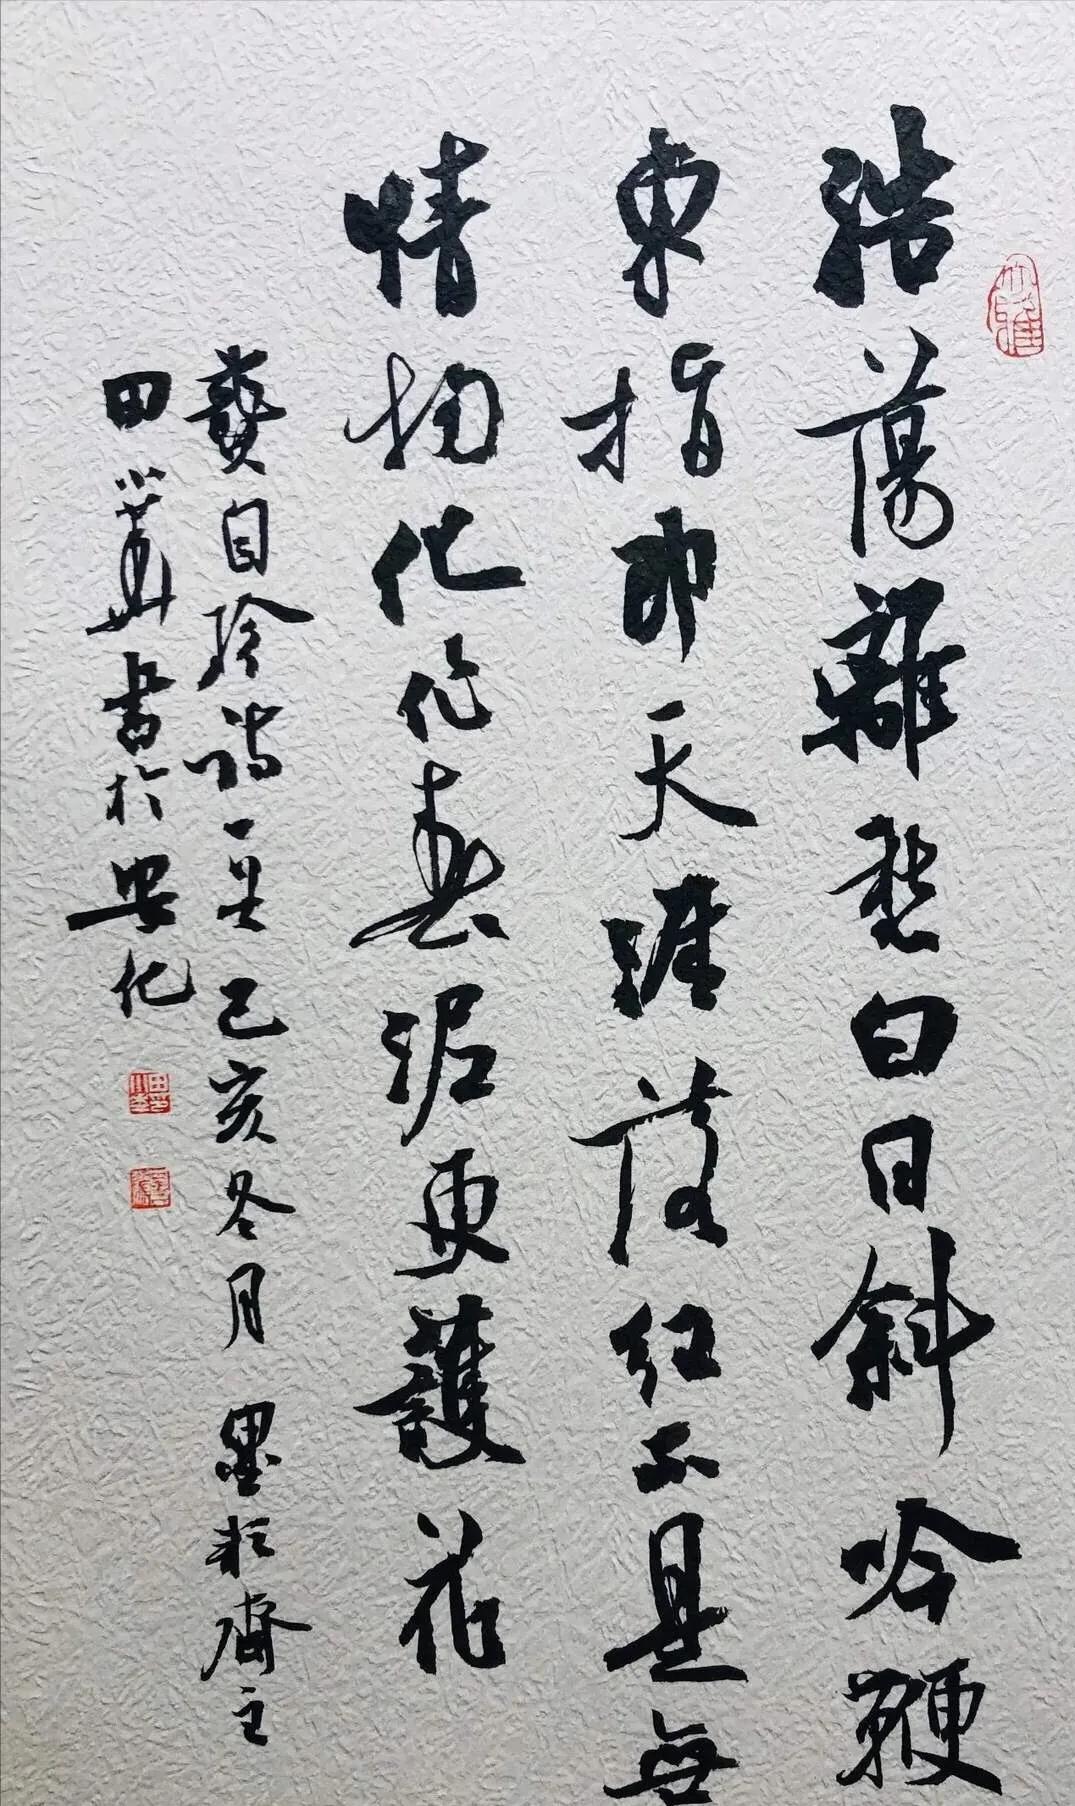 浩蕩離愁白日斜吟鞭
東指即天涯落紅不是無
情物化作春泥更護花
龔自珍詩一首己亥冬月墨齋主
田書於安化